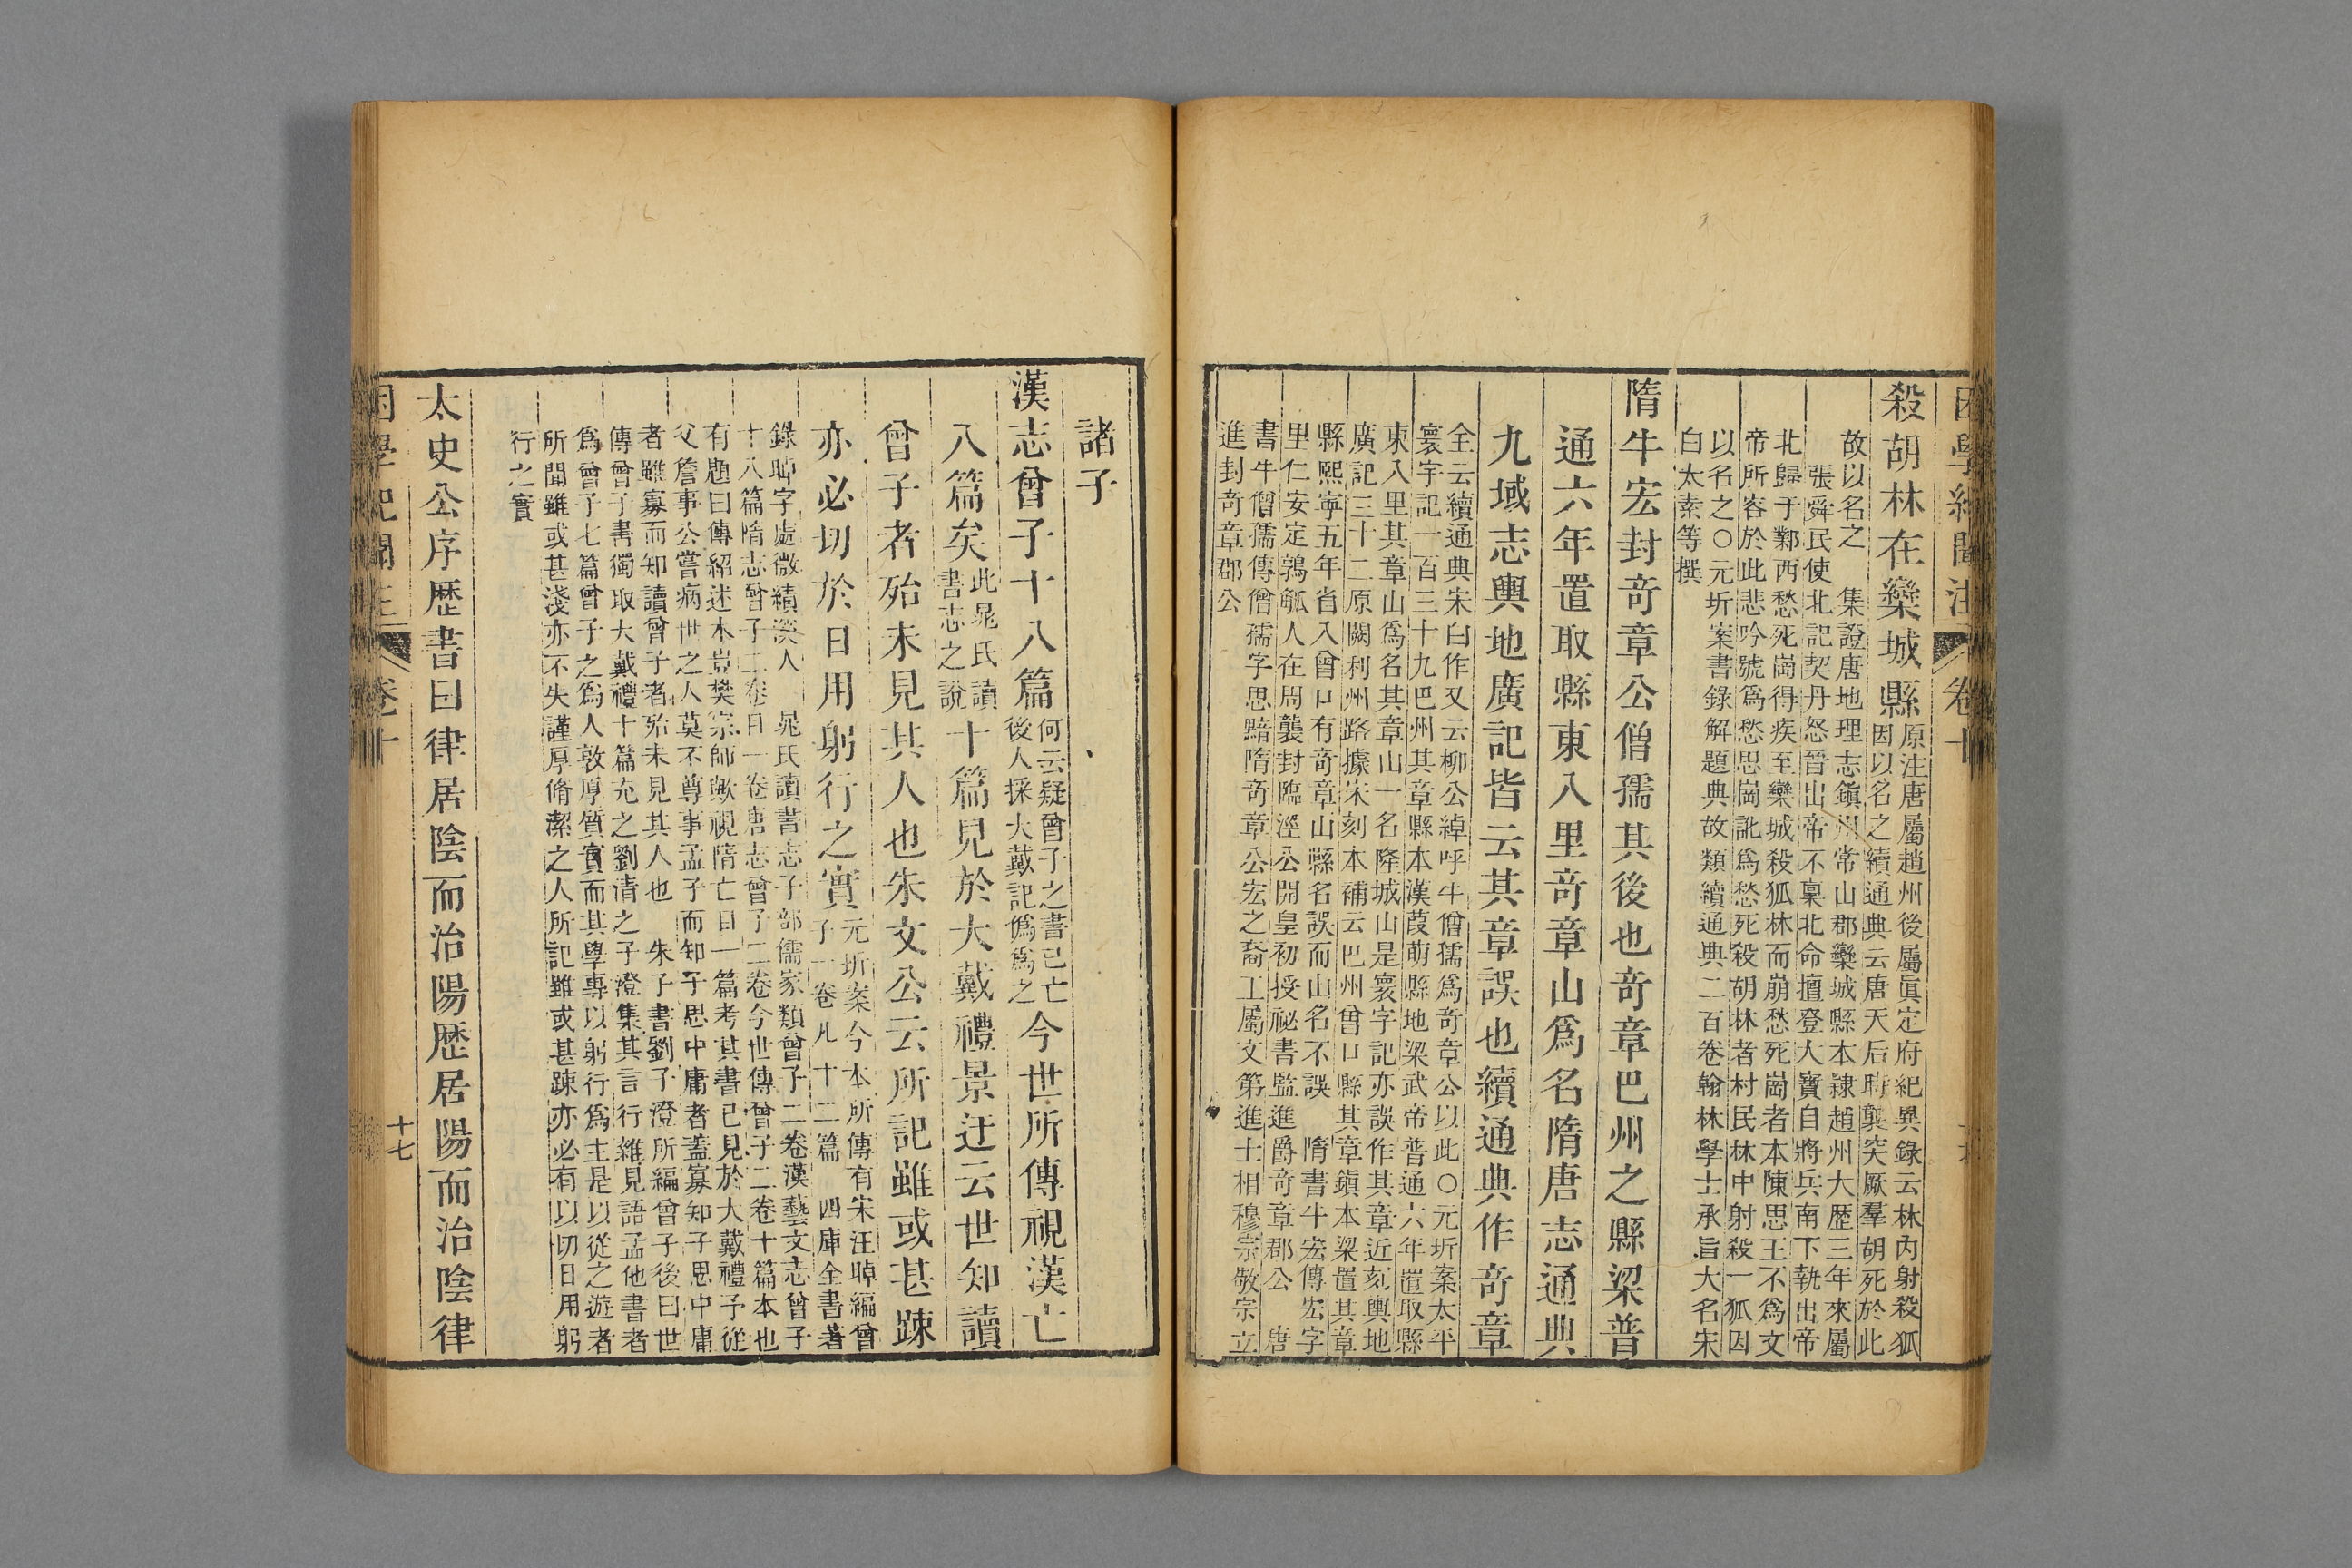 困學紀聞注 卷十
殺胡林在欒城縣原注唐屬趙州後屬眞定府紀異錄云林内射殺狐
因以名之續通典云唐天后時襲突厥羣胡死於此
故以名之　集證唐地理志鎭州常山郡欒城縣本隷趙州大歴三年來屬
張舜民使北記契丹怒晉出帝不稟北命擅登大寶自將兵南下執出帝
北歸于鄴西愁死崗得疾至欒城殺狐林而崩愁死崗者本陳思王不爲文
帝所容於此悲吟號爲愁思崗訛爲愁死殺胡林者村民林中射殺一狐因
以名之○元圻案書錄解題典故類續通典二百卷翰林學士承旨大名宋
白太素等撰
隋牛宏封竒章公僧孺其後也竒章巴州之縣梁普
通六年置取縣東八里竒章山爲名隋唐志通典
九域志輿地廣記皆云其章誤也續通典作竒章
全云續通典宋白作又云柳公綽呼牛僧孺爲竒章公以此○元圻案太平
寰宇記一百三十九巴州其章縣本漢葭萌縣地梁武帝普通六年置取縣
東八里其章山爲名其章山一名隆城山是寰宇記亦誤作其章近刻輿地
廣記三十二原闕利州路據宋刻本補云巴州曾口縣其章鎭本梁置其章
縣熙寧五年省入曾口有竒章山縣名誤而山名不誤　隋書牛宏傳宏字
里仁安定鶉觚人在周襲封臨涇公開皇初授祕書監進爵竒章郡公　唐
書牛僧孺傳僧孺字思黯隋竒章公宏之裔工屬文第進士相穆宗敬宗立
進封竒章郡公
諸子
漢志曾子十八篇何云疑曾子之書已亡
後人採大戴記僞爲之今世所傳視漢亡
八篇矣此晁氏讀
書志之說十篇見於大戴禮景迂云世知讀
曾子者殆未見其人也朱文公云所記雖或甚疎
亦必切於日用躬行之實元圻案今本所傳有宋汪晫編曾
子一卷凡十二篇　四庫全書著
錄晫字處微績溪人　晁氏讀書志子部儒家類曾子二卷漢藝文志曾子
十八篇隋志曾子二卷目一卷唐志曾子二卷今世傳曾子二卷十篇本也
有題曰傳紹述本豈樊宗師歟視隋亡目一篇考其書已見於大戴禮予從
父詹事公嘗病世之人莫不尊事孟子而知子思中庸者蓋寡知子思中庸
者雖寡而知讀曾子者殆未見其人也　朱子書劉子澄所編曾子後曰世
傳曾子書獨取大戴禮十篇充之劉清之子澄集其言行雜見語孟他書者
爲曾子七篇曾子之爲人敦厚質實而其學專以躬行爲主是以從之遊者
所聞雖或甚淺亦不失謹厚脩潔之人所記雖或甚疎亦必有以切日用躬
行之實
太史公序歴書曰律居陰而治陽歴居陽而治陰律
困學紀聞注 卷十
十七